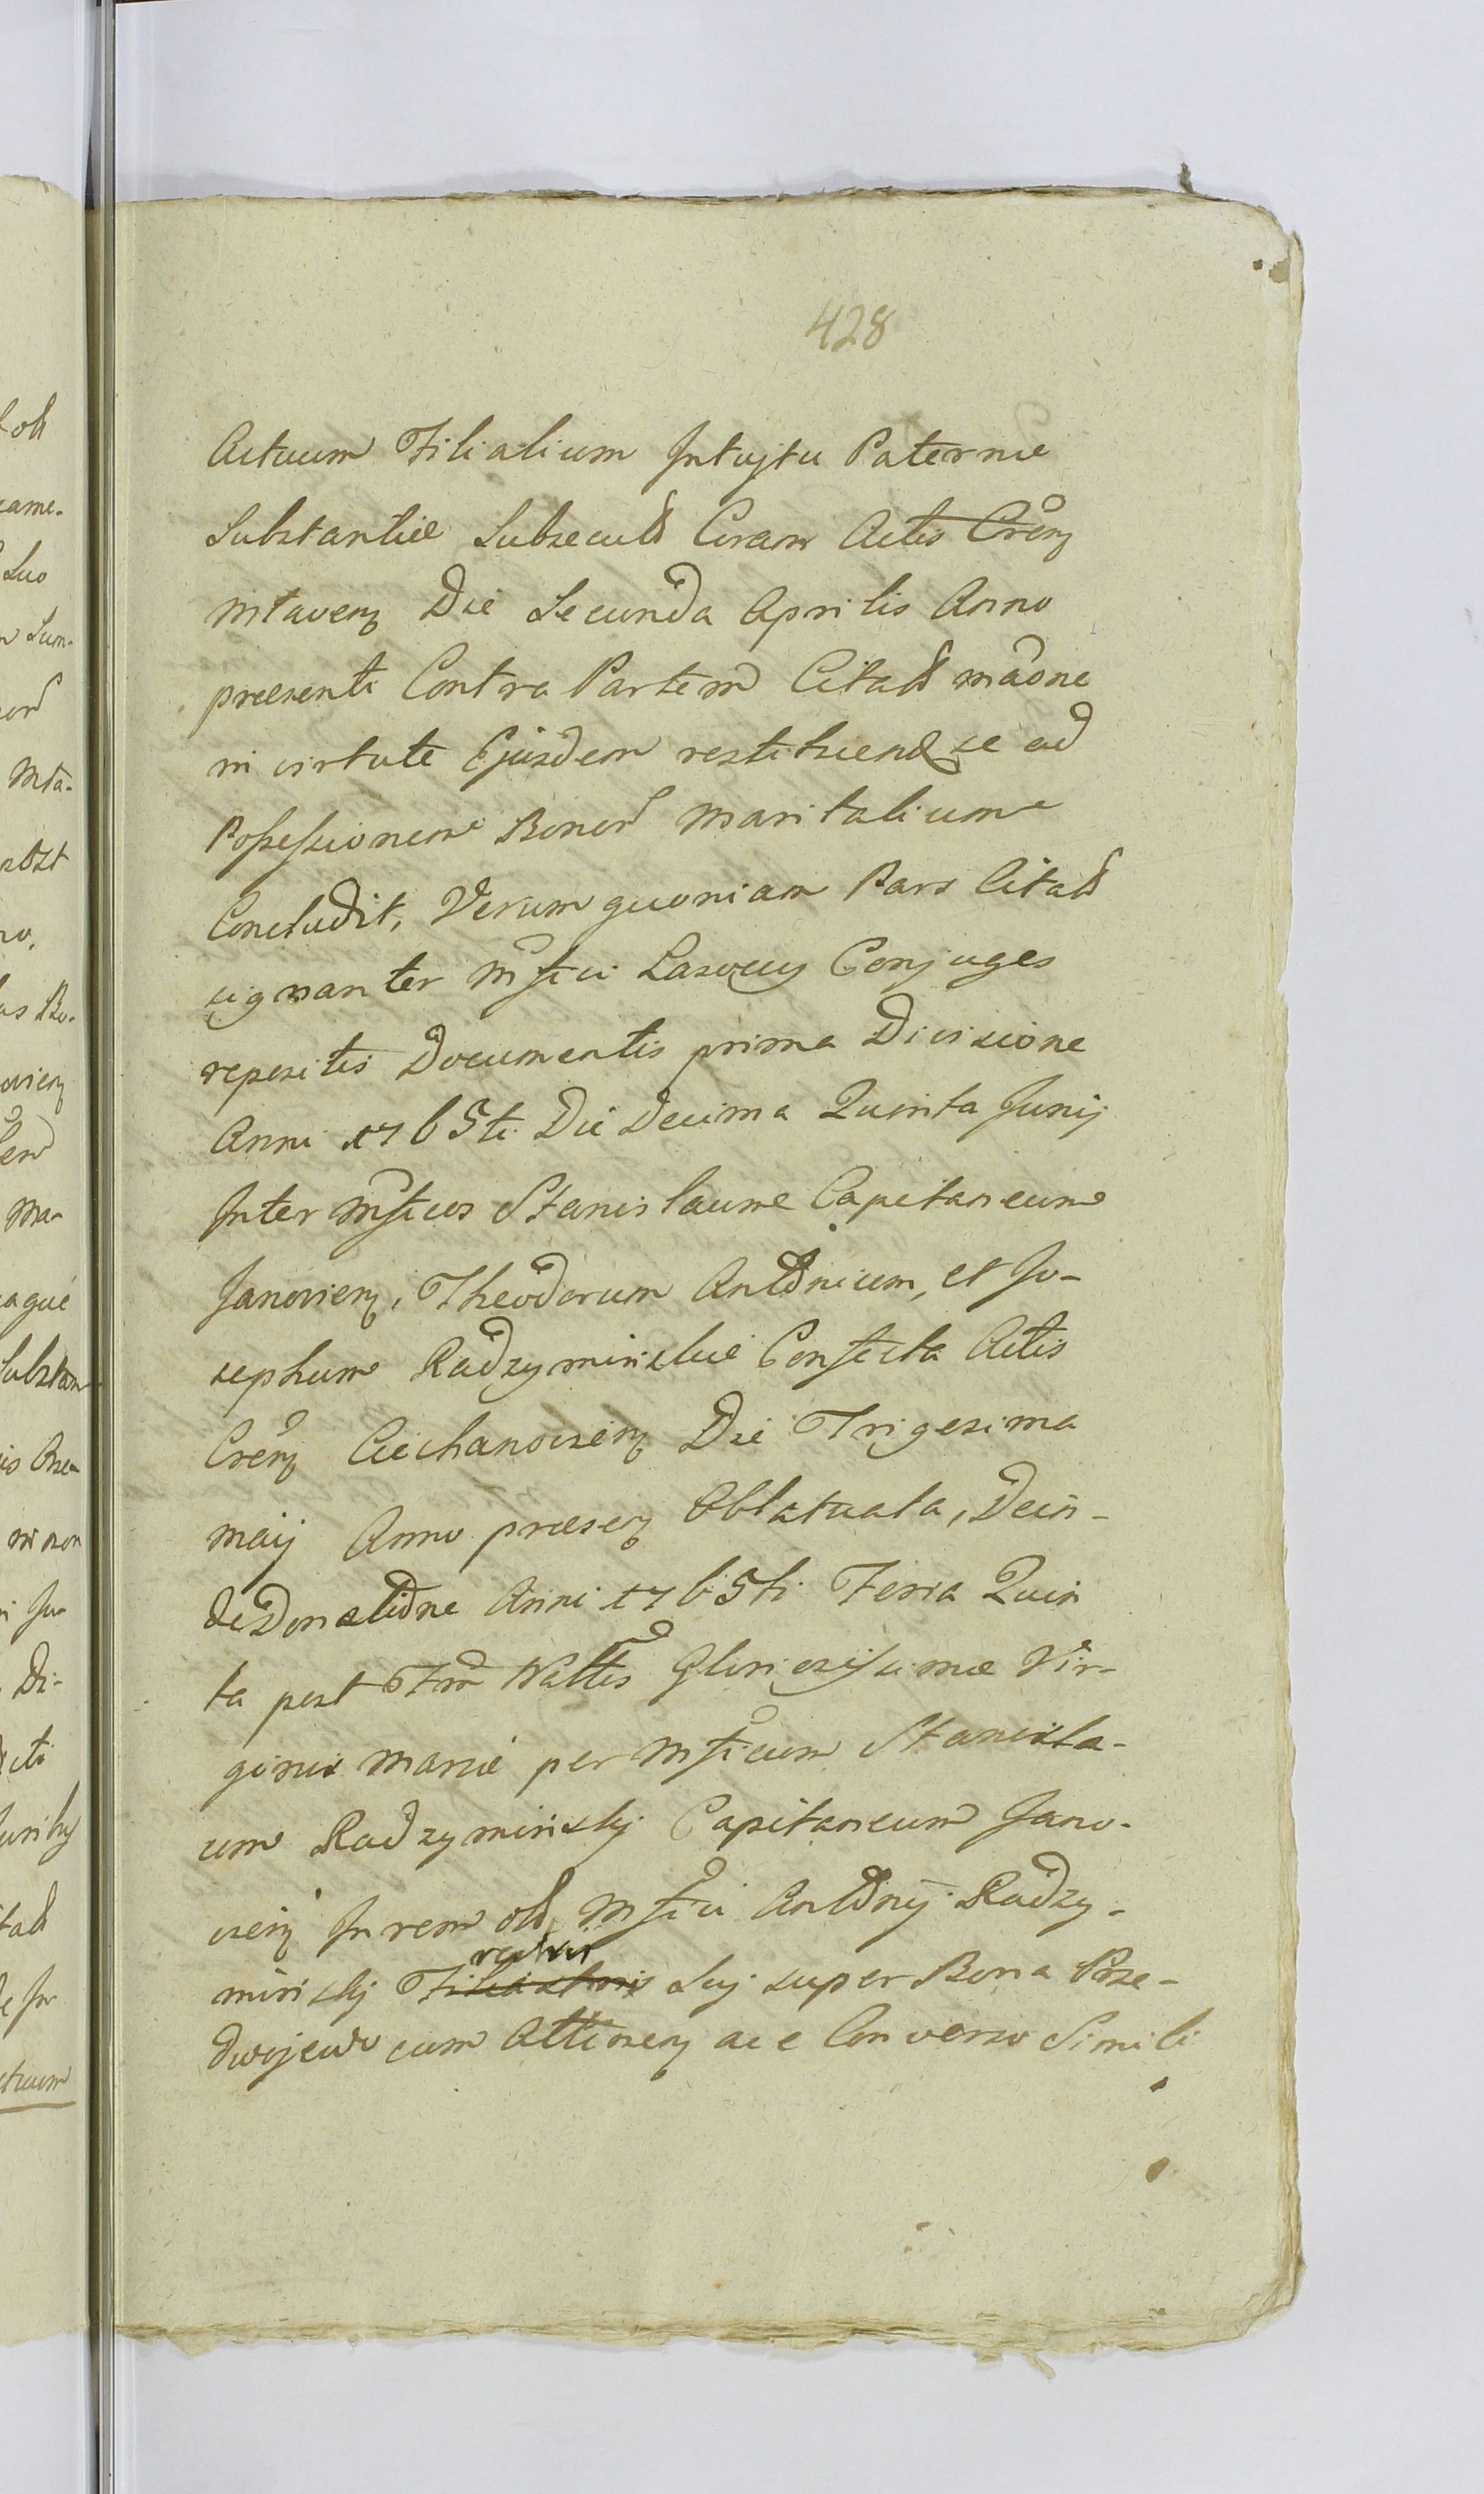 428
Actuum Filialium Intuitu Paternæ
Substantiæ Subsecuto Coram Actis Crēn̄
Mlaven Die Secunda Aprilis Anno
præsenti Contra Partem Citatā
in virtute Ejusdem restituend se ad
Possessionem Bonor Maritalium
Concludit, Verum quoniam Pars Citata
signanter Mffici Lasoccy Conjuges
repositis Documentis prima Divisione
Anni 1765ti Die Decima Quinta Junij
Inter Mfficos Stanislaum Capitaneum
Janovien, Theodorum Antonium, et Jo-
sephum Radzyminskie Confecta Actis
Crēn Ciechanovien Die Trigesima
Maij Anno præsen Oblatuata, Dein-
de Donatione Anni 1765ti Feria Quin
ta post Ftm Nattis Gloriosissimæ Vir-
ginis Mariæ per Mfficum Stanisla-
um Radzyminsky Capitaneum Jano-
vien In rem olim Mffici Antonij Radzy-
minsky Suj super Bona Prze-
dwojewo cum Attinen ac e Converso Simili